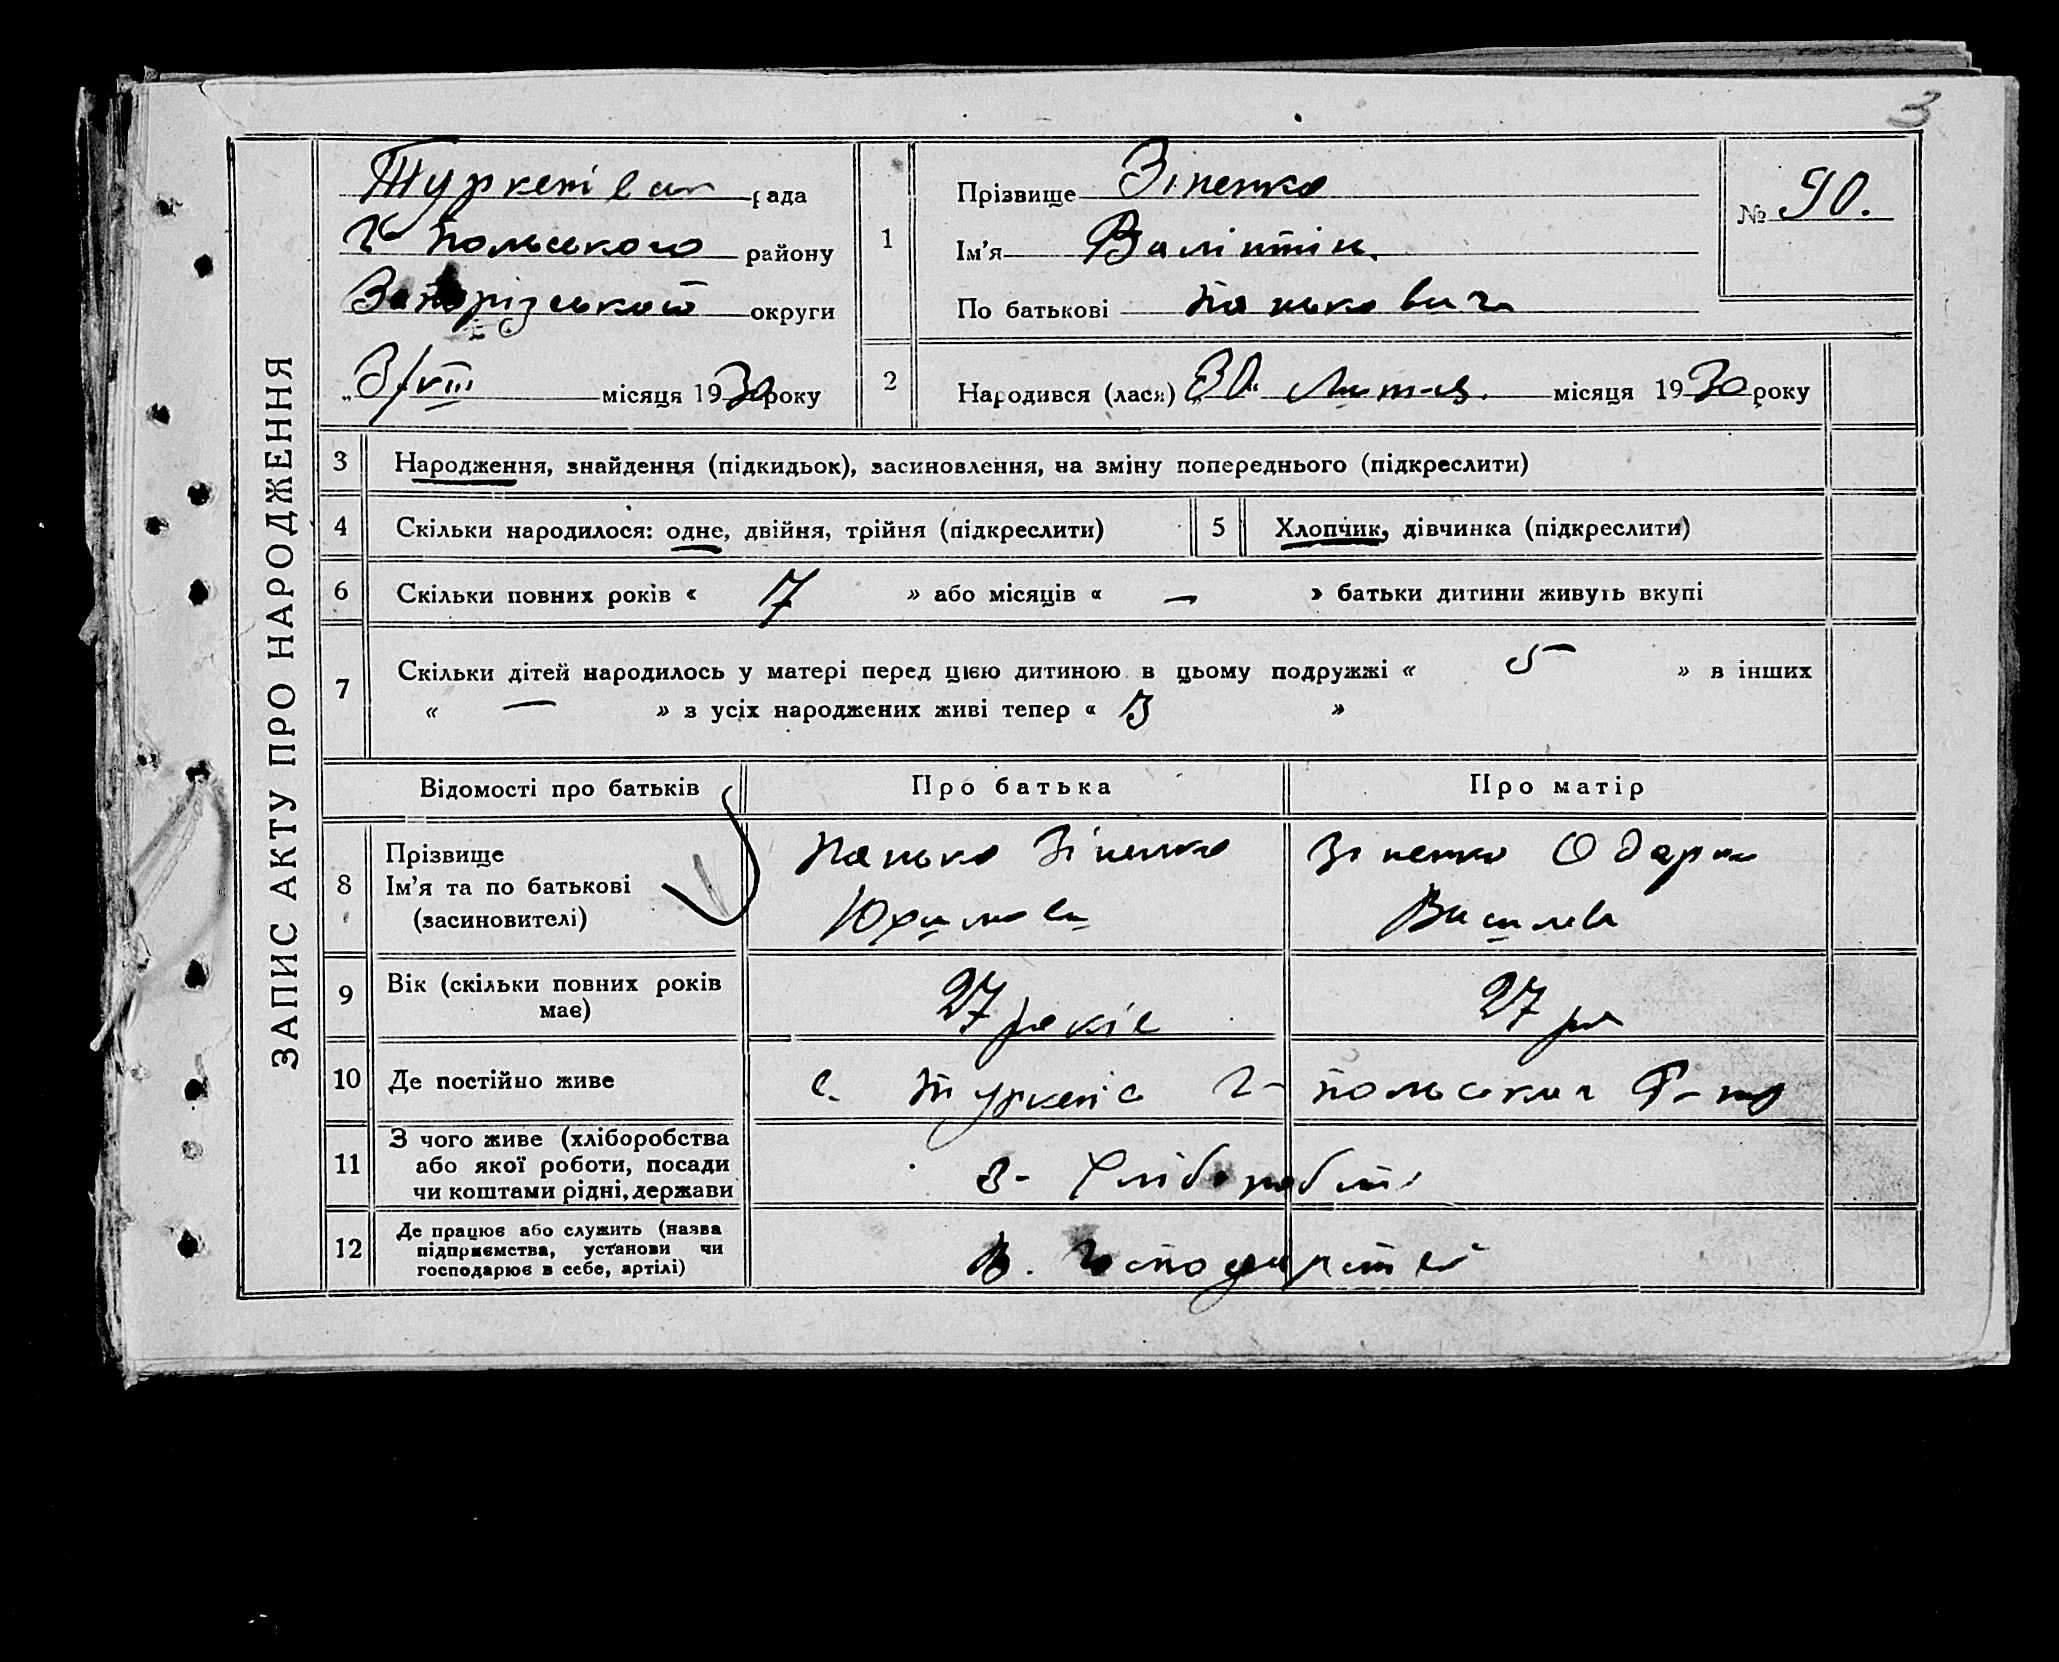 3
ЗАПИС АКТУ ПРО НАРОДЖЕННЯ
Туркенівск рада
Г-Польського району
Запорізської округи
„3/VIII місяця 1930 року
1
Прізвище Зіненко
Ім'я Валінтін.
По батькові Панькович
№ 90.
2
Народився (лася) „30" Липця. місяця 1930 року
3 Народження, знайдення (підкидьок), засиновлення, на зміну попереднього (підкреслити)
4 Скільки народилося: одне, двійня, трійня (підкреслити)
5 Хлопчик, дівчинка (підкреслити)
6 Скільки повних років « 7 » або місяців « — » батьки дитини живуть вкупі
7 Скільки дітей народилось у матері перед цією дитиною в цьому подружжі « 5 » в інших
« — » з усіх народжених живі тепер « 3 »
Відомості про батьків Про батька Про матір
8 Прізвище
Ім'я та по батькові
(засиновителі)
Панько Зіненко
Юхимов
Зіненко Одарка
Василев
9 Вік (скільки повних років
має)
27 років
27 рок
10 Де постійно живе
с. Туркенів Г-Польського Р-ну
11 З чого живе (хліборобства
або якої роботи, посади
чи коштами рідні, держави
З- Хліборобст
12 Де працює або служить (назва
підприємства, установи чи
господарює в себе, артілі)
В. Господарстві